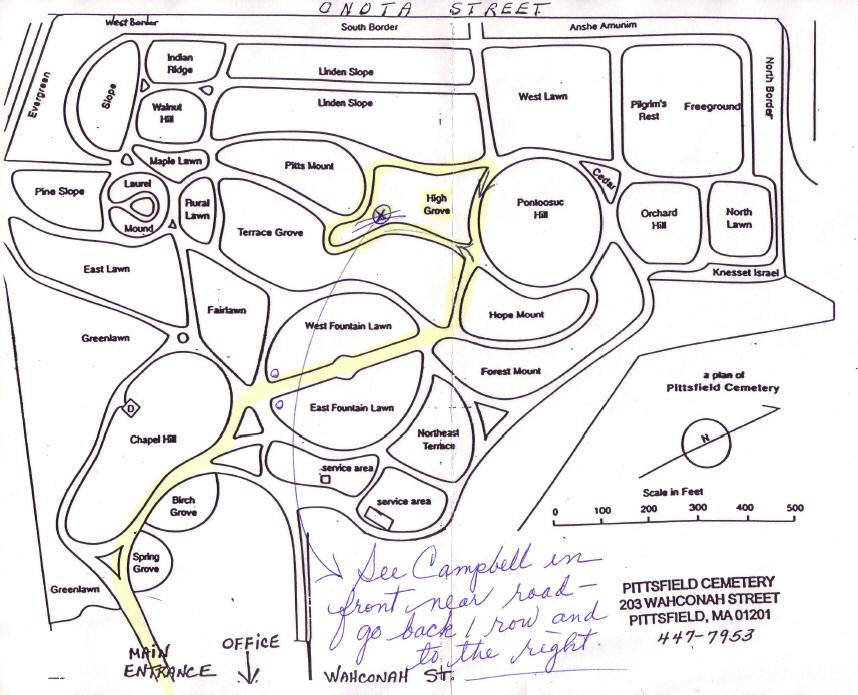 ONOTA STREET
West Border
South Border
Anshe Amunim
Evergreen
Slope
Indian
Ridge
Linden Slope
Linden Slope
Walnut
Hill
West Lawn
Pilgrim's
Rest
Freeground
North Border
Maple Lawn
Pitts Mount
Pine Slope
Laurel
Mound
Rural
Lawn
Terrace Grove
High
Grove
Pontoosuc
Hill
Cedar
Orchard
Hill
North
Lawn
East Lawn
Knesset Israel
Fairlawn
Greenlawn
West Fountain Lawn
Hope Mount
Forest Mount
a plan of
Pittsfield Cemetery
N
D
Chapel Hill
East Fountain Lawn
Northeast
Terrace
service area
service area
Birch
Grove
Spring
Grove
Greenlawn
Scale in Feet
0 100 200 300 400 500
See Campbell in
front near road-
go back 1 row and
to the right.
PITTSFIELD CEMETERY
203 WAHCONAH STREET
PITTSFIELD, MA 01201
447-7953
MAIN
ENTRANCE
OFFICE
WAHCONAH ST.